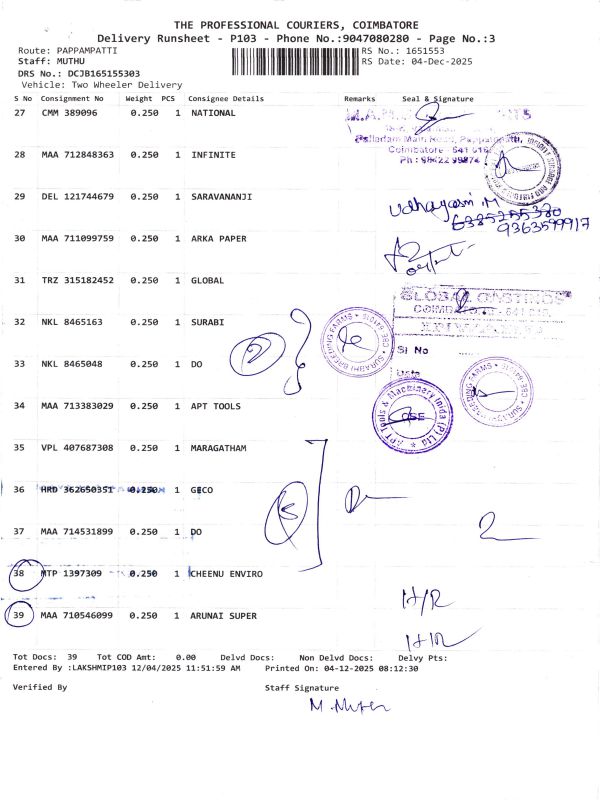 THE PROFESSIONAL COURIERS, COIMBATORE
Delivery Runsheet - P103 - Phone No.:9047080280 - Page No.:3
Route: PAPPAMPATTI
RS No.: 1651553
Staff: MUTHU
RS Date: 04-Dec-2025
DRS No.: DCJB165155303
Vehicle: Two Wheeler Delivery
S No Consignment No Weight PCS Consignee Details Remarks Seal & Signature
27 CMM 389096 0.250 1 NATIONAL
Palladam Main Road, Pappampatti,
Coimbatore - 641 016
Ph : 98422 99874
28 MAA 712848363 0.250 1 INFINITE
29 DEL 121744679 0.250 1 SARAVANANJI
Udhayasri.M
6385255380
9363599917
30 MAA 711099759 0.250 1 ARKA PAPER
31 TRZ 315182452 0.250 1 GLOBAL
GLOBAL CASTINGS
32 NKL 8465163 0.250 1 SURABI
2
SURABHI BREEDING FARMS CBE
Sl No
33 NKL 8465048 0.250 1 DO
Date
34 MAA 713383029 0.250 1 APT TOOLS
APT Tools & Machinery India (P) Ltd
CBE
35 VPL 407687308 0.250 1 MARAGATHAM
36 HRD 362650351 0.250 1 GECO
37 MAA 714531899 0.250 1 DO
38 MTP 1397309 0.250 1 CHEENU ENVIRO
H/R
39 MAA 710546099 0.250 1 ARUNAI SUPER
H/R
Tot Docs: 39 Tot COD Amt: 0.00 Delvd Docs: Non Delvd Docs: Delvy Pts:
Entered By :LAKSHMIP103 12/04/2025 11:51:59 AM Printed On: 04-12-2025 08:12:30
Verified By Staff Signature